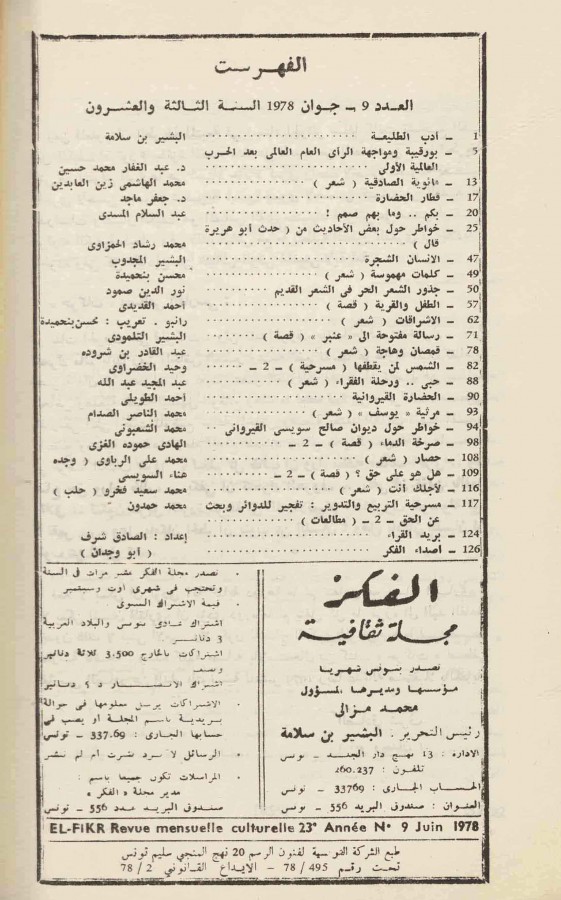 الفهرست
العدد 9 – جوان 1978 السنة الثالثة والعشرون
1 – أدب الطليعة ........ البشير بن سلامة
5 – بورقيبة ومواجهة الرأى العام العالمى بعد الحرب
العالمية الأولى ........ د. عبد الغفار محمد حسين
13 – الصادقية ( شعر ) ........ محمد الهاشمى زين العابدين
17 – قطار الحضارة ........ د. جعفر ماجد
20 – بكم .. وما بهم صمم ! ........ عبد السلام المسدى
25 – خواطر حول بعض الأحاديث من ( حدث أبو هريرة
قال ) ........ محمد رشاد الحمزاوى
47 – الانسان الشجرة ........ البشير المجدوب
49 – كلمات مهموسة ( شعر ) ........ محسن بنحميدة
50 – جذور الشعر الحر فى الشعر القديم ........ نور الدين صمود
57 – الطفل والقرية ( قصة ) ........ أحمد القديدى
62 – الاشراقات ( شعر ) ........ رانبو . تعريب : محسن بنحميدة
71 – رسالة مفتوحة الى « عنبر » ( قصة ) ........ البشير التلمودى
78 – قمصان وهاجة ( شعر ) ........ عبد القادر بن شروده
82 – الشمس لمن يقطفها ( مسرحية ) – 2 – ........ وحيد الخضراوى
88 – حبى .. ورحلة الفقراء ( شعر ) ........ عبد المجيد عبد الله
90 – الحضارة القيروانية ........ أحمد الطويلى
93 – مرثية « يوسف » ( شعر ) ........ محمد الناصر الصدام
94 – خواطر حول ديوان صالح سويسى القيروانى .. محمد الشعبونى
98 – صرخة الدماء ( قصة ) – 2 – ........ الهادى حموده الغزى
108 – حصار ( شعر ) ........ محمد على الرباوى ( وجده
109 – هل هو على حق ؟ ( قصة ) – 2 – ........ هناء السويسى
116 – لأجلك أنت ( شعر ) ........ محمد سعيد فخرو ( حلب )
117 – مسرحية التربيع والتدوير : تفجير للدوائر وبحث ........ محمد حمدون
عن الحق – 2 – ( مطالعات )
124 – بريد القراء ........ اعداد : الصادق شرف
126 – أصداء الفكر ........ ( أبو وجدان )
الفكر
مجلة ثقافية
تصدر بتونس شهريا
مؤسسها ومديرها المسؤول
محمد مزالى
رئيس التحرير . البشير بن سلامة
الادارة : 13 نهج دار الجلد – تونس
تلفون : 260.237
الحساب الجارى : 33769 – تونس
العنوان : صندوق البريد 556 – تونس
• تصدر مجلة الفكر عشر مرات فى السنة
وتحتجب فى شهرى أوت وسبتمبر
• قيمة الاشتراك السنوى
اشتراك عادى بتونس والبلاد العربية
3 دنانير
اشتراكات بالخارج 3.500 ثلاثة دنانير
ونصف
اشتراك الأنصار 5 دنانير
• الاشتراكات يرسل معلومها فى حوالة
بريدية باسم المجلة أو يصب فى
حسابها الجارى : 337.69 – تونس
• الرسائل لا ترد نشرت أم لم تنشر
• المراسلات تكون جميعا باسم :
مدير مجلة « الفكر »
صندوق البريد عدد 556 – تونس
EL-FIKR Revue mensuelle culturelle 23e Année N° 9 Juin 1978
طبع الشركة التونسية لفنون الرسم 20 نهج المنجي سليم تونس
تحت رقم 78/495 – الايداع القانونى 2/78